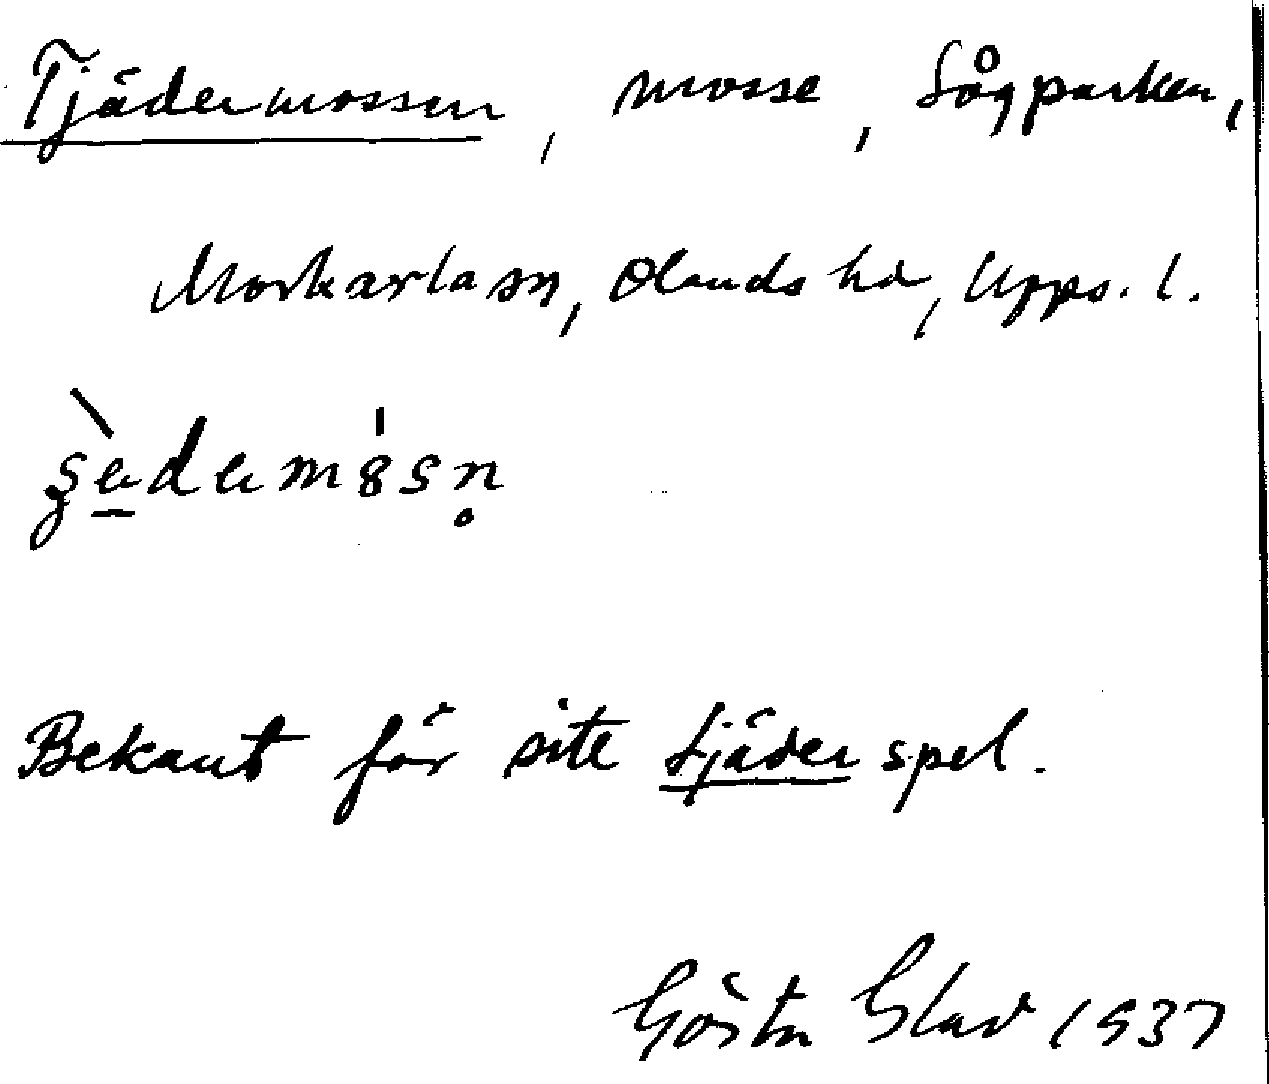 Tjädermossen, mosse, Sågparken,
Morkarla sn, Olands hd, Upps. l.
Bekant för sitt tjäderspel.
Gösta Glad 1937